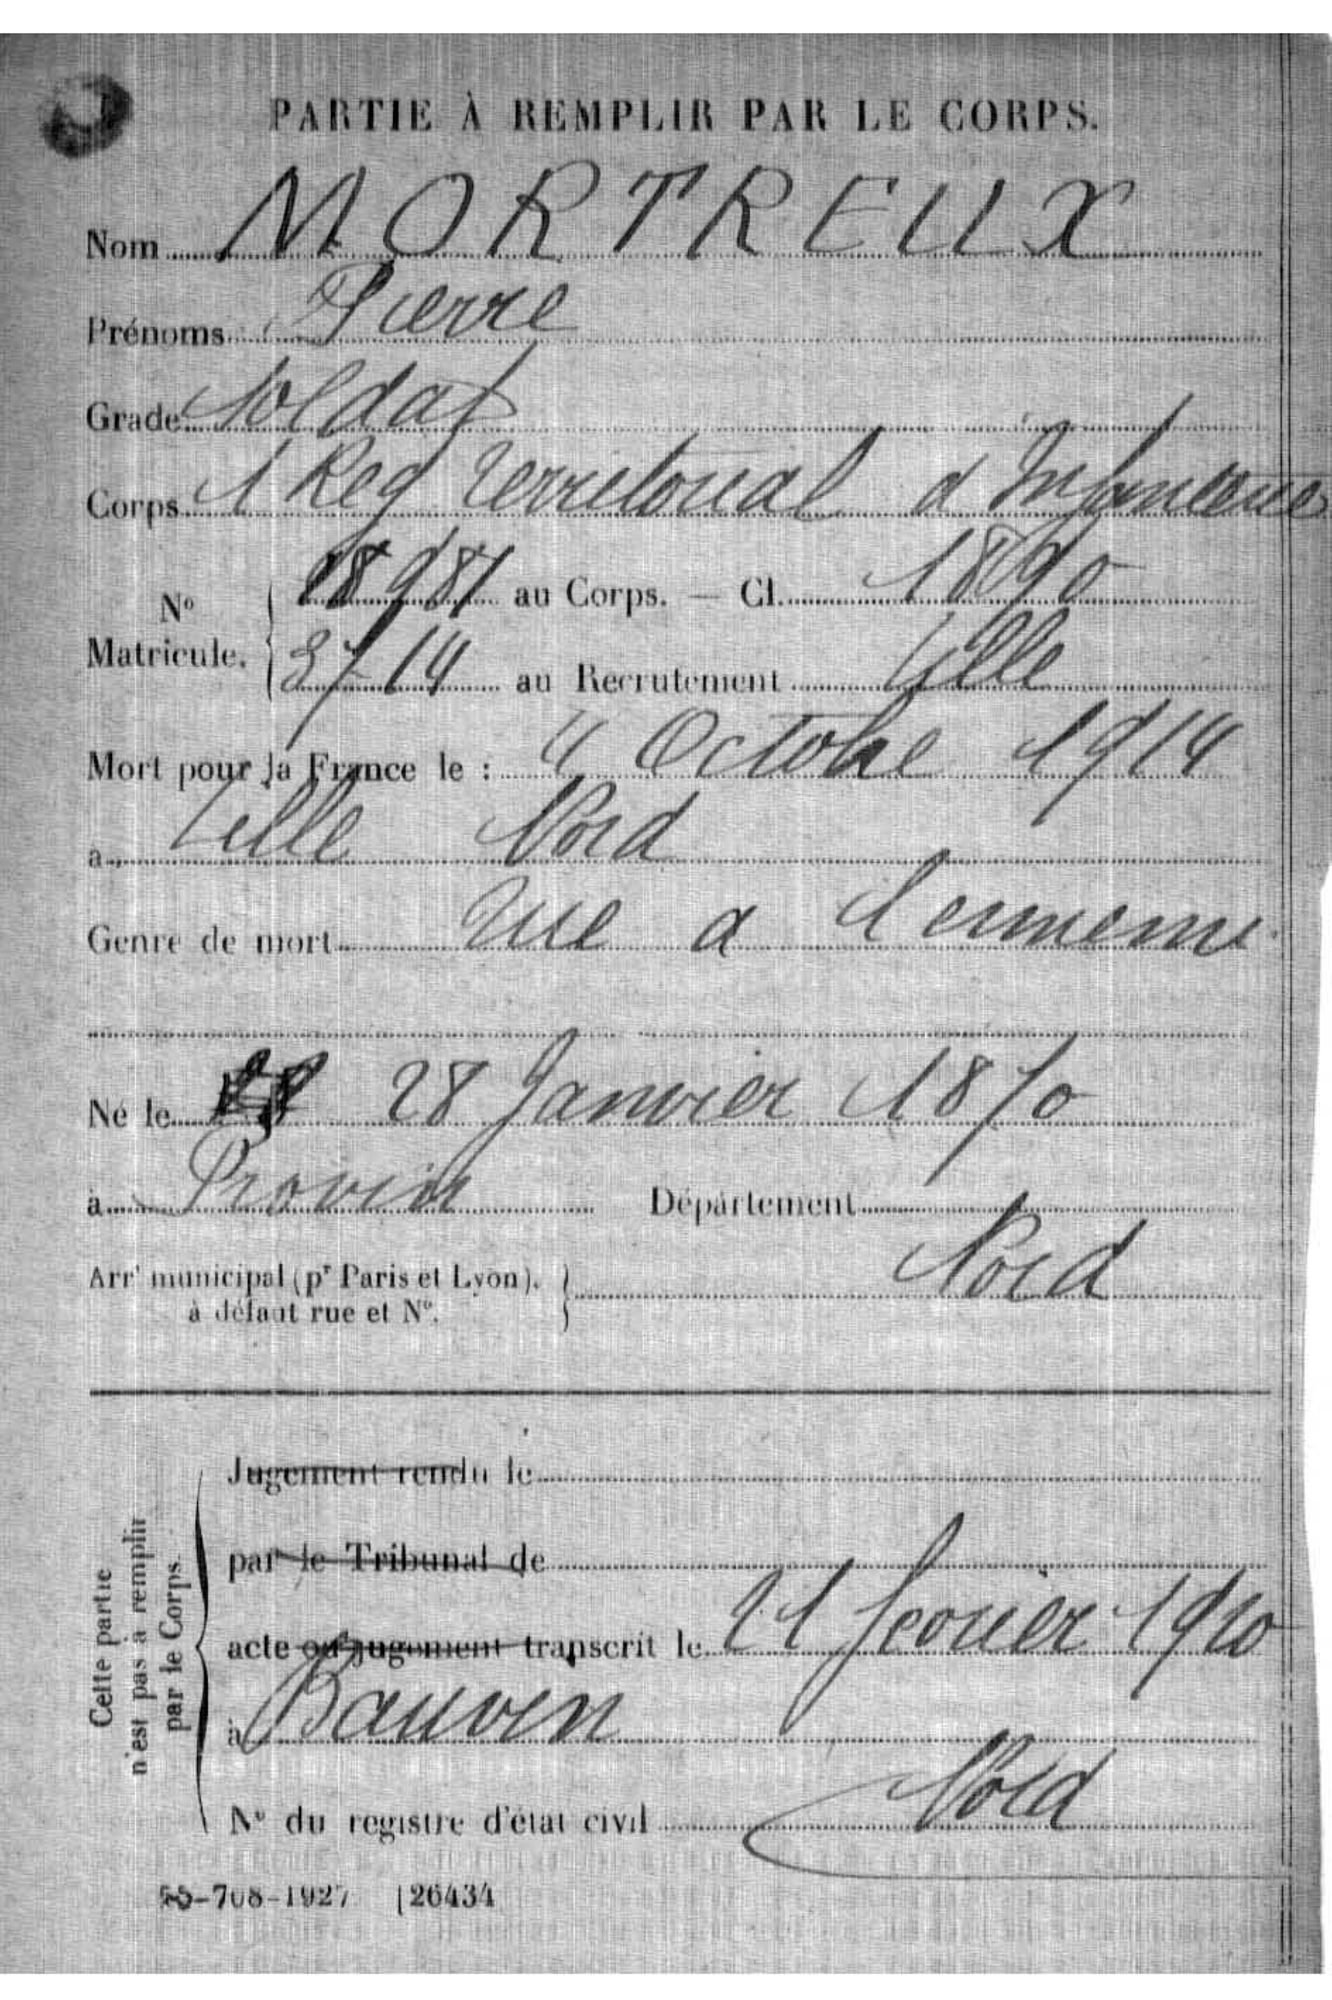 PARTIE À REMPLIR PAR LE CORPS.
Nom MORTREUX
Prénoms Pierre
Grade soldat
Corps 1 Reg territorial d Infanterie
N° Matricule. 18981 au Corps. — Cl. 1890
3714 au Recrutement Lille
Mort pour la France le : 4 Octobre 1914
à Lille Nord
Genre de mort Tué a l'ennemi
Né le 28 Janvier 1870
à Provin Département
Arr^t municipal (p^r Paris et Lyon). Nord
à défaut rue et N°.
Jugement rendu le
par le Tribunal de
acte ou jugement transcrit le 21 fevrier 1920
à Bauvin
N° du registre d'état civil Nord
Cette partie
n'est pas à remplir
par le Corps
-708-1927 [26434